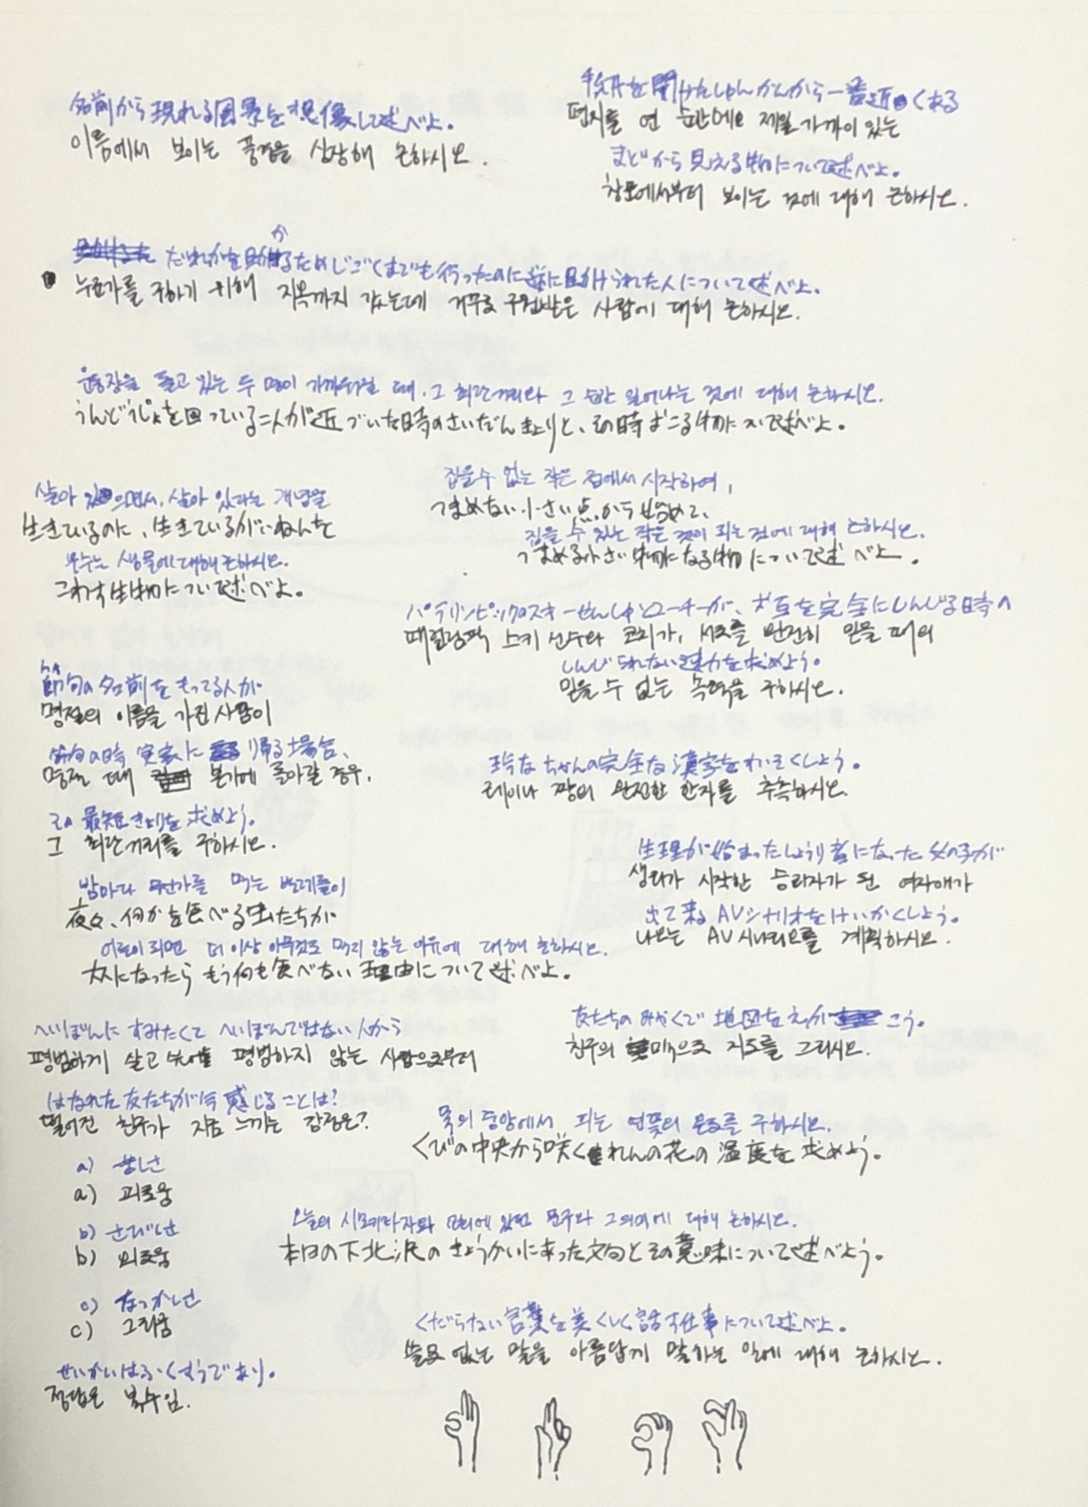 名前から現れる風景を想像して述べよ。
이름에서 보이는 풍경을 상상해 논하시오.
手紙を開けたしゅんかんから一番近くある
편지를 연 순간에요 제일 가까이 있는
まどから見える物について述べよ。
창문에서부터 보이는 것에 대해 논하시오.
だれかを助けるためじごくまでも行ったのに逆に助けられた人について述べよ。
누군가를 구하기 위해 지옥까지 갔는데 거꾸로 구원받은 사람에 대해 논하시오.
운동장을 돌고 있는 두 명이 가까워질 때, 그 최단거리와 그 순간 일어나는 것에 대해 논하시오.
うんどうじょを回っている二人が近づいた時のさいだんきょりと、その時おこる物について述べよ。
살아 있으면서, 살아 있다는 개념을
生きているのに、生きているがいねんを
부수는 생물에 대해 논하시오.
こわす生物について述べよ。
집을 수 없는 작은 점에서 시작하여,
つまめない小さい点から始めて、
집을 수 있는 작은 것이 되는 것에 대해 논하시오.
つまめる小さい物になる物について述べよ。
パラリンピックのスキーせんしゅとコーチが、お互を完全にしんじる時の
패럴림픽 스키 선수와 코치가, 서로를 완전히 믿을 때의
しんじられない速力を求めよう。
믿을 수 없는 속력을 구하시오.
節句の名前をもってる人が
명절의 이름을 가진 사람이
節句の時 実家に帰る場合、
명절 때 본가에 돌아갈 경우,
その最短きょりを求めよう。
그 최단거리를 구하시오.
玲なちゃんの完全な漢字をすいそくしよう。
레이나 짱의 완전한 한자를 추측하시오.
生理が始まったしょうり者になった女の子が
생리가 시작한 승리자가 된 여자애가
出て来るAVシナリオをけいかくしよう。
나오는 AV 시나리오를 계획하시오.
밤마다 무언가를 먹는 벌레들이
夜々、何かを食べる虫たちが
어른이 되면 더 이상 아무것도 먹지 않는 이유에 대해 논하시오.
大人になったらもう何も食べない理由について述べよ。
へいぼんにすみたくてへいぼんではない人から
평범하게 살고 싶어 평범하지 않는 사람으로부터
はなれた友たちが今感じることは?
떨어진 친구가 지금 느끼는 감정은?
a) 苦しさ
a) 괴로움
b) さびしさ
b) 외로움
c) なつかしさ
c) 그리움
せいかいはふくすうであり。
정답은 복수임.
友たちのみかくで地図をえがこう。
친구의 미각으로 지도를 그리시오.
목의 중앙에서 피는 연꽃의 온도를 구하시오.
くびの中央から咲くれんの花の温度を求めよう。
오늘의 시모키타자와 교회에 있던 문구와 그 의미에 대해 논하시오.
本日の下北沢のきょうかいにあった文句とその意味について述べよう。
くだらない言葉を美しく話す仕事について述べよ。
쓸모 없는 말을 아름답게 말하는 일에 대해 논하시오.